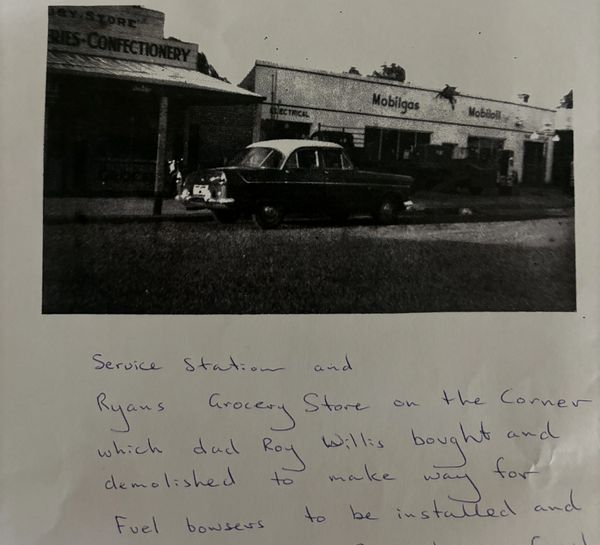 BY. STORE
RIES-CONFECTIONERY
ELECTRICAL
Mobilgas
Mobiloil
Service Station and
Ryans Grocery Store on the Corner
which dad Roy Willis bought and
demolished to make way for
Fuel bowsers to be installed and